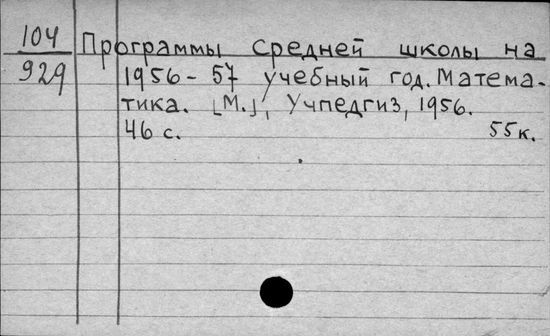 104
929
Программы средней школы на
1956-57 учебный год. Матема-
тика. [М.], Учпедгиз, 1956.
46 с. 55к.